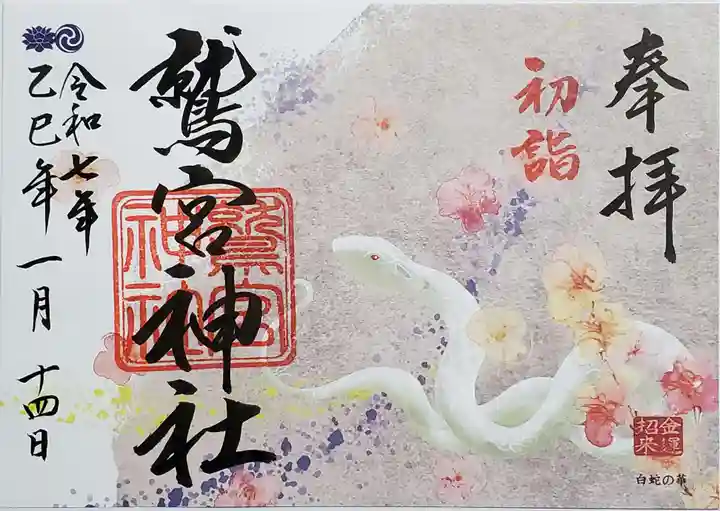 奉拝
初詣
鷲宮神社
鷲宮
神社
令和七年
乙巳年一月十四日
金運
招来
白蛇の華